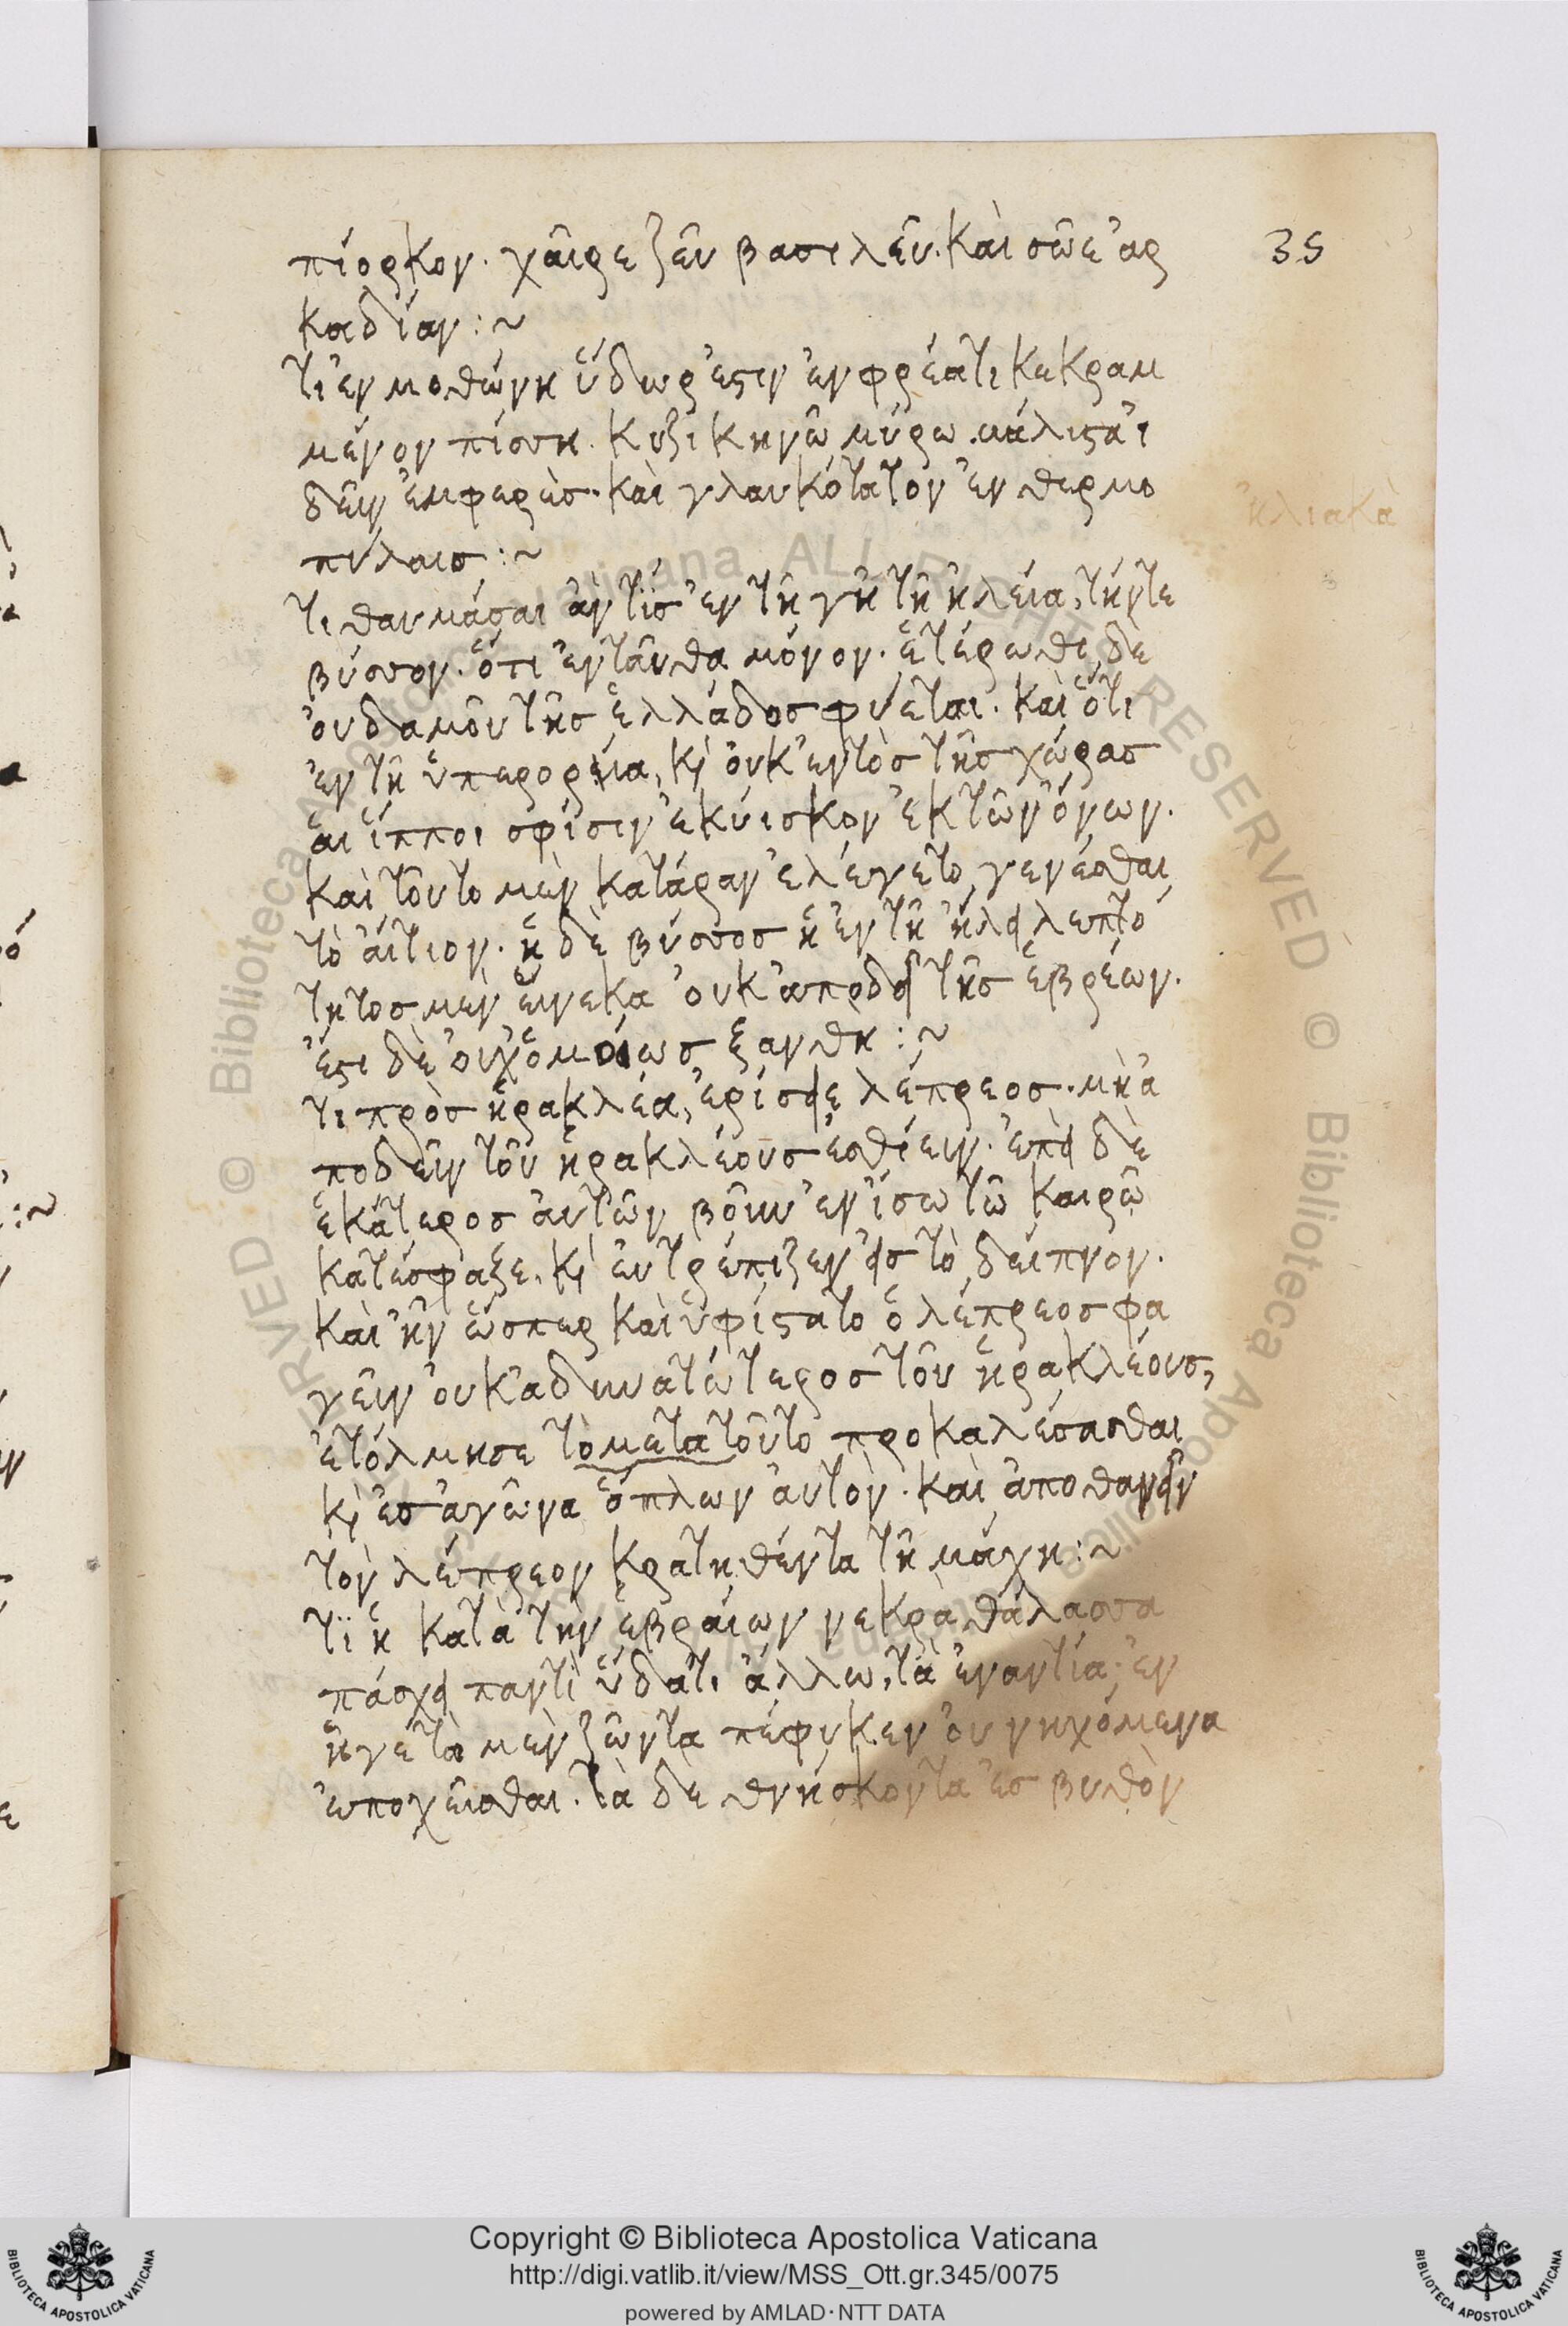 πίορκον. χαῖρε ζεῦ βασιλεῦ. καὶ σῶε ἀρ
35
καδίαν :~
τί ἐν μοθώνη ὕδωρ ἐστιν ἐν φρέατι κεκραμ
μένον πίσση. κυζικηνῶ μύρω. μάλιστα ἰ
δεῖν ἐμφερὲσ. καὶ γλαυκότατον ἐν θερμο
ἠλιακὰ
πύλαισ :~
τί θαυμάσαι ἄν τϊσ ἐν τῆ γῆ τῆ ἠλεία, τήν τε
βύσσον. ὅτι ἐνταῦθα μόνον. ἑτέρωθι δὲ
οὐδαμοῦ τῆσ ἑλλάδοσ φύεται. καὶ ὅτι
ἐν τῆ ὑπερορεία, κ̀ οὐκ ἐντὸσ τῆσ χώρασ
αἱ ἵπποι σφίσιν ἐκύισκον ἐκ τῶν ὄνων.
καὶ τοῦτο μὲν κατάραν ἐλέγετο γενέσθαι
τὸ αἴτιον. ἡ δὲ βύσσοσ ἡ ἐν τῆ ἠλει λεπτό
τητοσ μὲν εἵνεκα οὐκ ἀποδεῖ τῆσ ἑβρέων.
ἔστι δὲ οὐχ ὁμοίωσ ξανθὴ :~
τί πρὸσ ἡρακλέα, ἐρίσειε λέπρεοσ. μὴ ἀ
ποδεῖν τοῦ ἡρακλέουσ ἐσθίειν. ἐπεὶ δὲ
ἑκάτεροσ αὐτῶν βοῦν ἐν ἴσω τῶ καιρῶ
κατέσφαξε, κ̀ εὐτρέπιζεν εἰσ τὸ δεῖπνον.
καὶ ἦν ὥσπερ καὶ ὑφίστατο ὁ λέπρεοσ φα
γεῖν οὐκ ἀδυνατώτεροσ τοῦ ἡρακλέουσ,
ἐτόλμησε τὸ μετὰ τοῦτο προκαλέσασθαι
κ̀ ἐσ ἀγῶνα ὅπλων αὐτὸν. καὶ ἀποθανεῖν
τὸν λέπρεον κρατηθέντα τῆ μάχη :~
τϊ ἡ κατὰ τὴν ἑβραίων νεκρὰ θάλασσα
πάσχει παντὶ ὕδατι ἄλλω, τὰ ἐναντία. ἐν
ἧ γε τὰ μὲν ζῶντα πέφυκεν οὐ νηχόμενα
ἐποχεῖσθαι. τὰ δὲ θνήσκοντα ἐσ βυθὸν
Copyright © Biblioteca Apostolica Vaticana
http://digi.vatlib.it/view/MSS_Ott.gr.345/0075
powered by AMLAD·NTT DATA